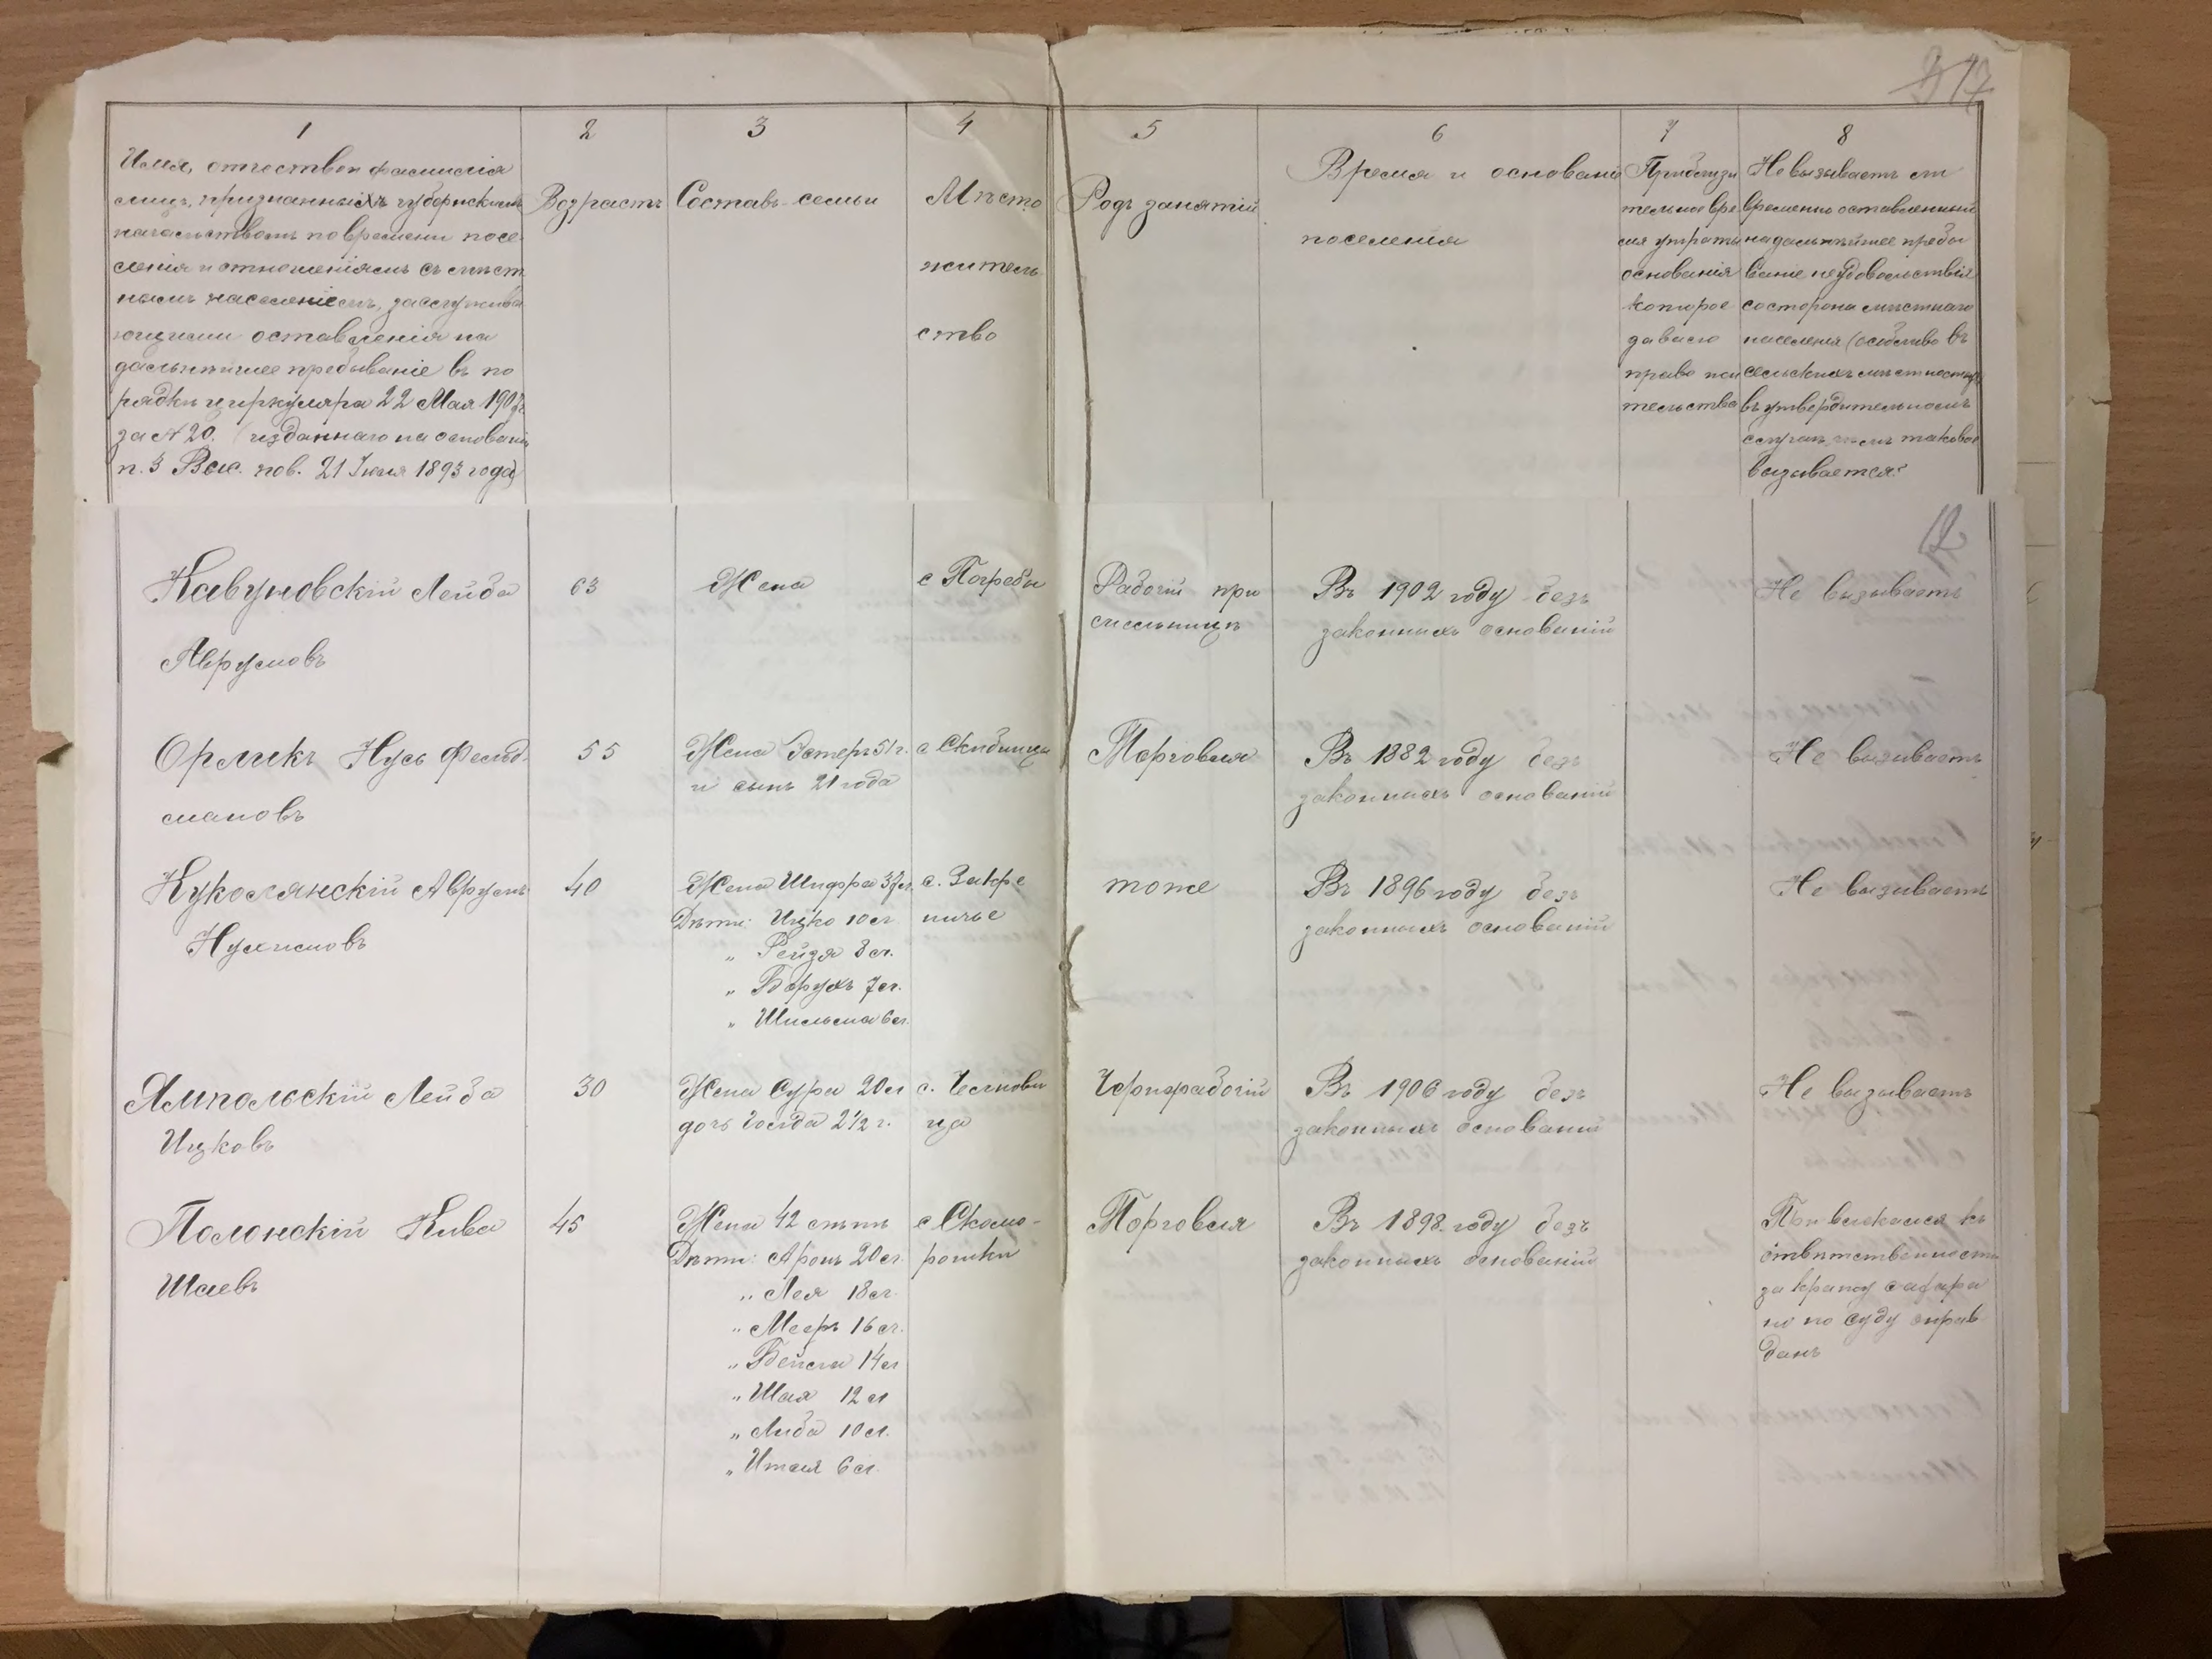 17
1
2
3
4
5
6
7
8
Имя, отчество и фамилія
лицъ, признанныхъ губернскимъ
начальствомъ по времени посе
ленія и отношеніямъ съ мѣст
нымъ населеніемъ, заслужива
ющими оставленія на
дальнѣйшее пребываніе въ по
рядкѣ циркуляра 22 Мая 1907 г.
за № 20. (изданнаго на основаніи
п. 3 Выс. пов. 21 Іюля 1893 года)
Возрастъ
Составъ семьи
Мѣсто
житель
ство
Родъ занятій
Время и основаніе
поселенія
Приблизи
тельное вре
мя утраты
основанія
которое
давало
право жи
тельства
Не вызываетъ ли
временно оставленный
на дальнѣйшее пребы
ваніе неудовольствія
со стороны мѣстнаго
населенія (особливо въ
сельскихъ мѣстностяхъ
въ утвердительномъ
случаѣ, чѣмъ таковое
вызывается?
12
Кавуновскій Лейба
Аврумовъ
63
Жена
с Погребы
Рабочій при
мельницѣ
Въ 1902 году безъ
законныхъ основаній
Не вызываетъ
Орликъ Нусь Фельд-
мановъ
55
Жена Эстеръ 51 г.
и сынъ 21 года
с Скибинцы
Торговля
Въ 1882 году безъ
законныхъ основаній
Не вызываетъ
Куколянскій Аврумъ
Нухимовъ
40
Жена Шифра 37 л.
Дѣти: Ицко 10 л
„ Рейзя 8 л.
„ Борухъ 7 л.
„ Шильма 6 л.
с. Закре
ничье
тоже
Въ 1896 году безъ
законныхъ основаній
Не вызываетъ
Ямпольскій Лейба
Ицковъ
30
Жена Сура 20 л
дочь Голда 2½ г.
с.
ца
Чернорабочій
Въ 1906 году безъ
законныхъ основаній
Не вызываетъ
Полонскій Кива
Шаевъ
45
Жена 42 лѣтъ
Дѣти: Аронъ 20 л.
„ Лея 18 л.
„ Мееръ 16 л.
„ Бейла 14 л
„ Шая 12 л
„ Либа 10 л.
„ Итля 6 л.
с Скомо-
рошки
Торговля
Въ 1898 году безъ
законныхъ основаній
Привлекался къ
отвѣтственности
за кражу сахара
но по суду оправ
данъ